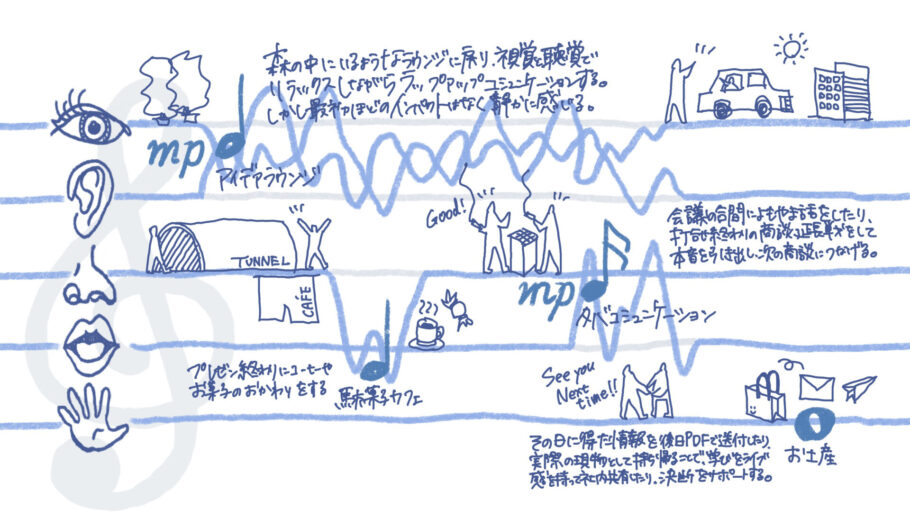 森の中にいるようなラウンジに戻り、視覚と聴覚で
リラックスしながらラップアップコミュニケーションする。
しかし最初ほどのインパクトはなく静かに感じる。
mp
アイデアラウンジ
Good!
会議の合間によもやま話をしたり、
打合せ終わりの商談延長戦をして
本音を引き出し、次の商談につなげる。
TUNNEL
CAFE
mp
タバコミュニケーション
プレゼン終わりにコーヒーや
お菓子のおかわりをする
駄菓子カフェ
See you
Next
time!!
お土産
その日に得た情報を後日PDFで送付したり、
実際の現物として持ち帰ることで、学びをライブ
感を持って社内共有したり、決断をサポートする。